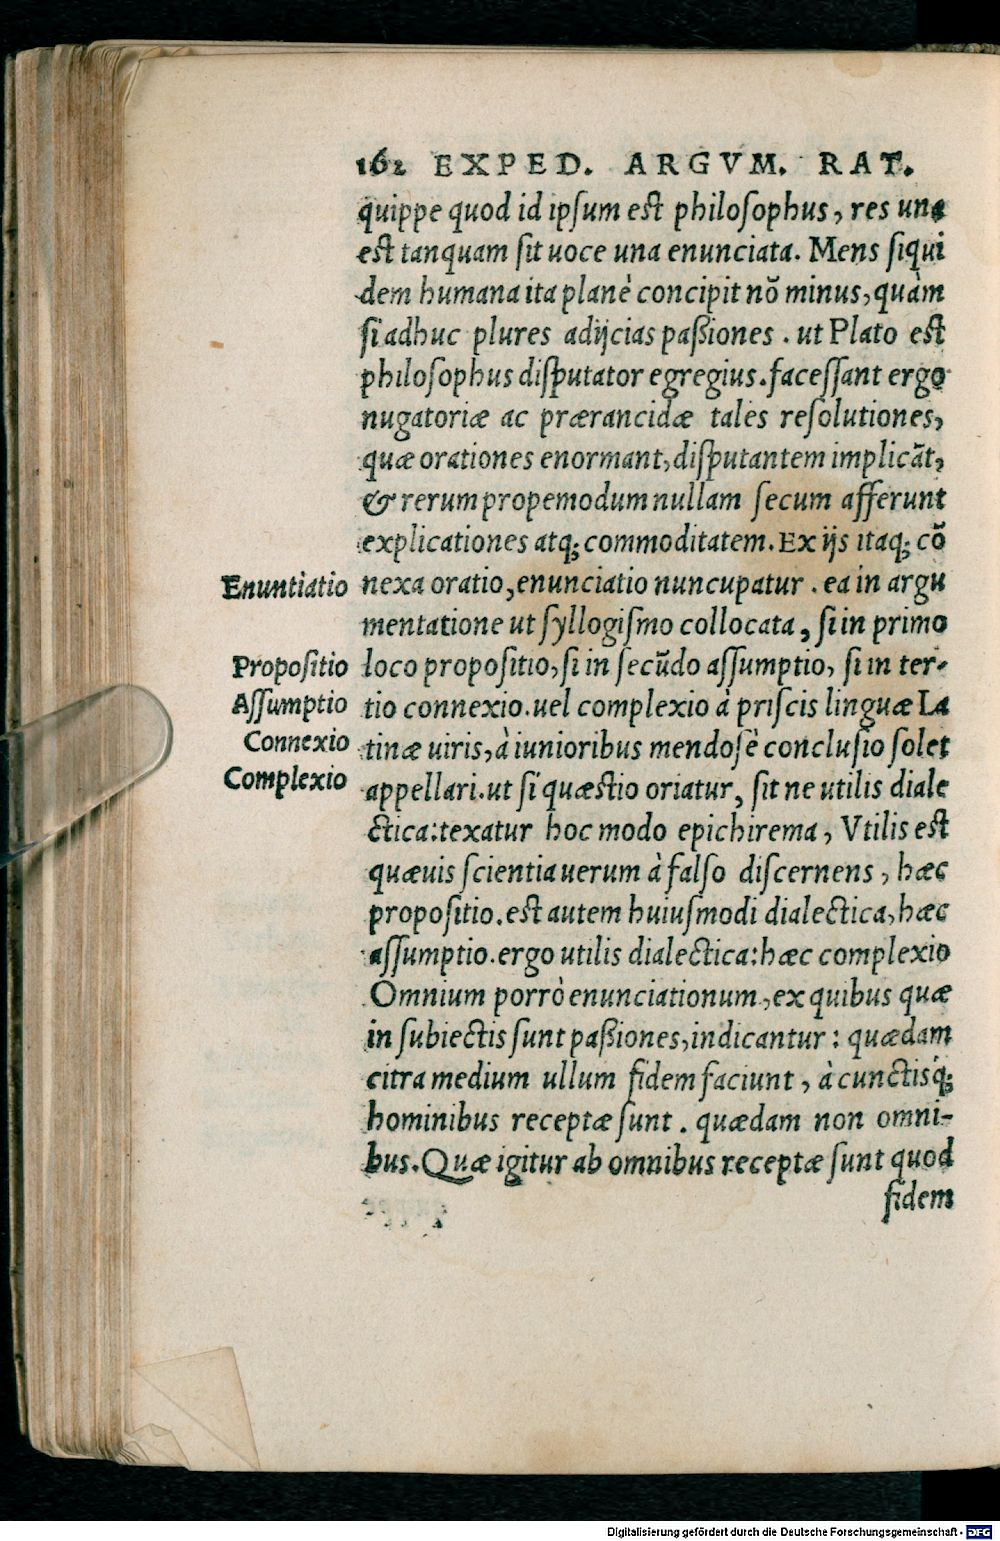 162 EXPED. ARGVM. RAT.
quippe quod id ipſum eſt philoſophus, res una
eſt tanquam ſit uoce una enunciata. Mens ſiqui
dem humana ita planè concipit nõ minus, quàm
ſi adhuc plures adijcias paßiones . ut Plato eſt
philoſophus diſputator egregius. faceſſant ergo
nugatoriæ ac prærancidæ tales reſolutiones,
quæ orationes enormant, diſputantem implicãt,
& rerum propemodum nullam ſecum afferunt
explicationes atq; commoditatem. Ex ijs itaq; cõ
Enuntiatio nexa oratio, enunciatio nuncupatur . ea in argu
mentatione ut ſyllogiſmo collocata, ſi in primo
Propoſitio loco propoſitio, ſi in ſecũdo aſſumptio, ſi in ter-
Aſſumptio tio connexio. uel complexio à priſcis linguæ La
Connexio tinæ uiris, à iunioribus mendoſè concluſio ſolet
Complexio appellari. ut ſi quæſtio oriatur, ſit ne utilis diale
ctica: texatur hoc modo epichirema, Vtilis eſt
quæuis ſcientia uerum à falſo diſcernens, hæc
propoſitio. eſt autem huiuſmodi dialectica, hæc
aſſumptio. ergo utilis dialectica: hæc complexio
Omnium porrò enunciationum, ex quibus quæ
in ſubiectis ſunt paßiones, indicantur: quædam
citra medium ullum fidem faciunt, à cunctisq́;
hominibus receptæ ſunt. quædam non omni-
bus. Quæ igitur ab omnibus receptæ ſunt quod
fidem
Digitalisierung gefördert durch die Deutsche Forschungsgemeinschaft - DFG